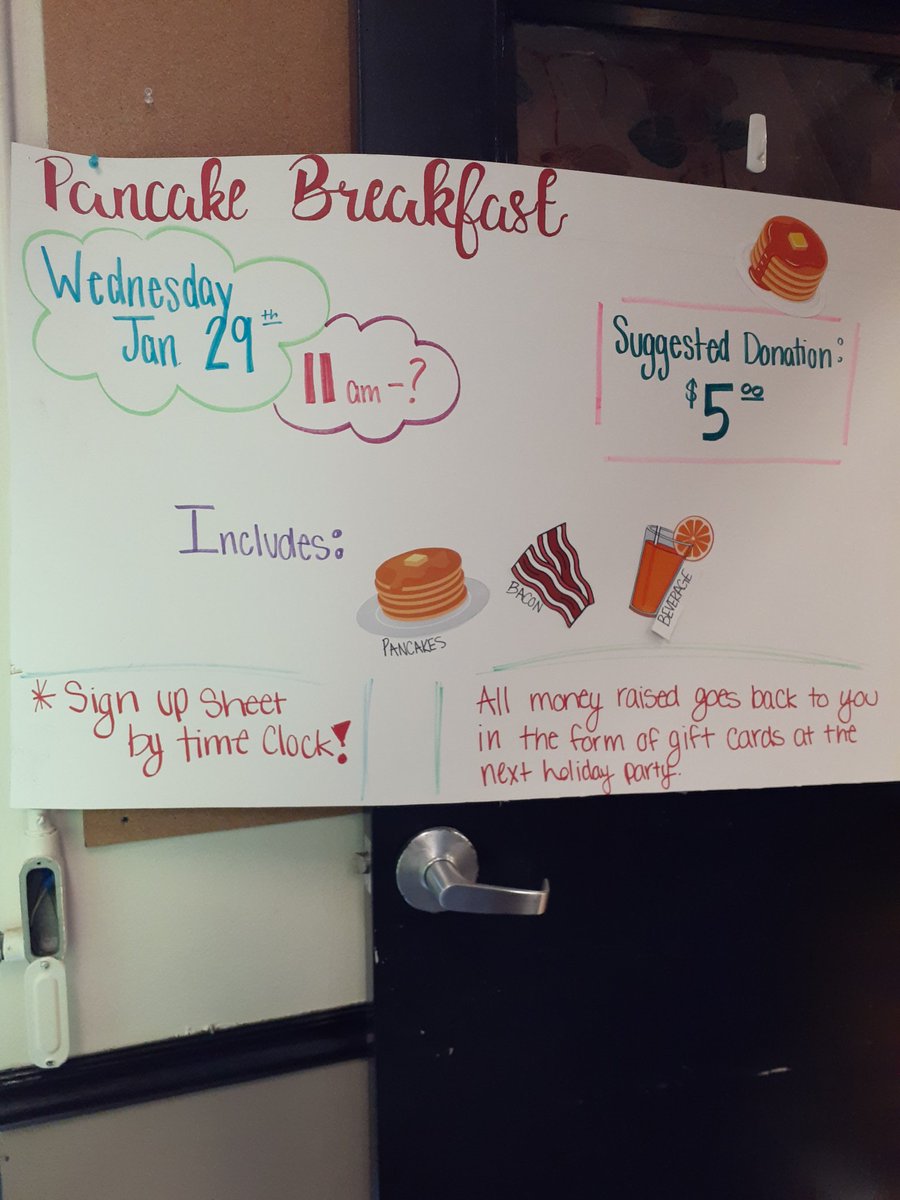 Pancake Breakfast
Wednesday
Jan 29th
11 am - ?
Suggested Donation:
$5.00
Includes:
PANCAKES
BACON
BEVERAGE
* Sign up sheet
by time clock!
All money raised goes back to you
in the form of gift cards at the
next holiday party.